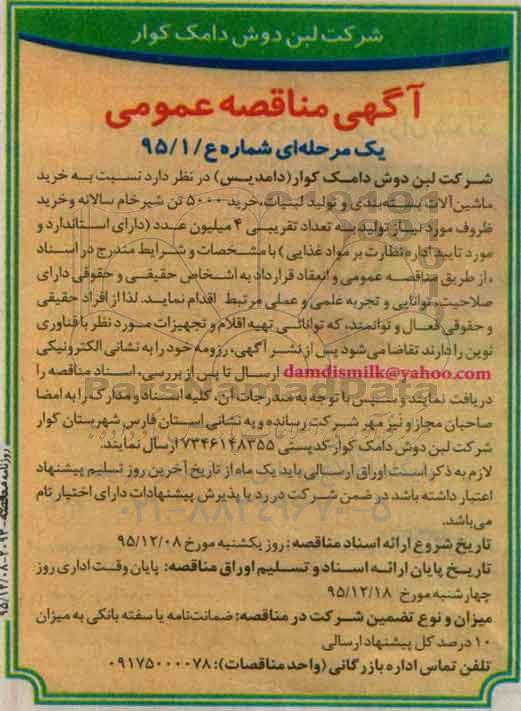 شرکت لبن دوش دامک کوار
آگهی مناقصه عمومی
یک مرحله‌ای شماره ع/۹۵/۱
شرکت لبن دوش دامک کوار(دامدیس) در نظر دارد نسبت به خرید
ماشین‌آلات بسته‌بندی و تولید لبنیات، خرید ۵۰۰۰ تن شیرخام سالانه وخرید
ظروف مورد نیاز تولید به تعداد تقریبی ۴ میلیون عدد (دارای استاندارد و
مورد تایید اداره نظارت بر مواد غذایی) با مشخصات و شرایط مندرج در اسناد
، از طریق مناقصه عمومی و انعقاد قرارداد به اشخاص حقیقی و حقوقی دارای
صلاحیت، توانایی و تجربه علمی و عملی مرتبط اقدام نماید. لذا از افراد حقیقی
و حقوقی فعال و توانمند، که توانائی تهیه اقلام و تجهیزات مورد نظر با فناوری
نوین را دارند تقاضا می‌شود پس از نشر آگهی، رزومه خود را به نشانی الکترونیکی
damdismilk@yahoo.com ارسال تا پس از بررسی، اسناد مناقصه را
دریافت نمایند و سپس با توجه به مندرجات آن، کلیه اسناد و مدارک را به امضا
صاحبان مجاز و نیز مهر شرکت رسانده و به نشانی استان فارس شهرستان کوار
شرکت لبن دوش دامک کوار کدپستی ۷۳۴۶۱۴۸۳۵۵ ارسال نمایند.
لازم به ذکر است اوراق ارسالی باید یک ماه از تاریخ آخرین روز تسلیم پیشنهاد
اعتبار داشته باشد در ضمن شرکت در رد یا پذیرش پیشنهادات دارای اختیار تام
می‌باشد.
تاریخ شروع ارائه اسناد مناقصه: روز یکشنبه مورخ ۹۵/۱۲/۰۸
تاریخ پایان ارائه اسناد و تسلیم اوراق مناقصه: پایان وقت اداری روز
چهارشنبه مورخ ۹۵/۱۲/۱۸
میزان و نوع تضمین شرکت در مناقصه: ضمانت‌نامه یا سفته بانکی به میزان
۱۰ درصد کل پیشنهاد ارسالی
تلفن تماس اداره بازرگانی (واحد مناقصات): ۰۹۱۷۵۰۰۰۰۷۸
ParsNamadData